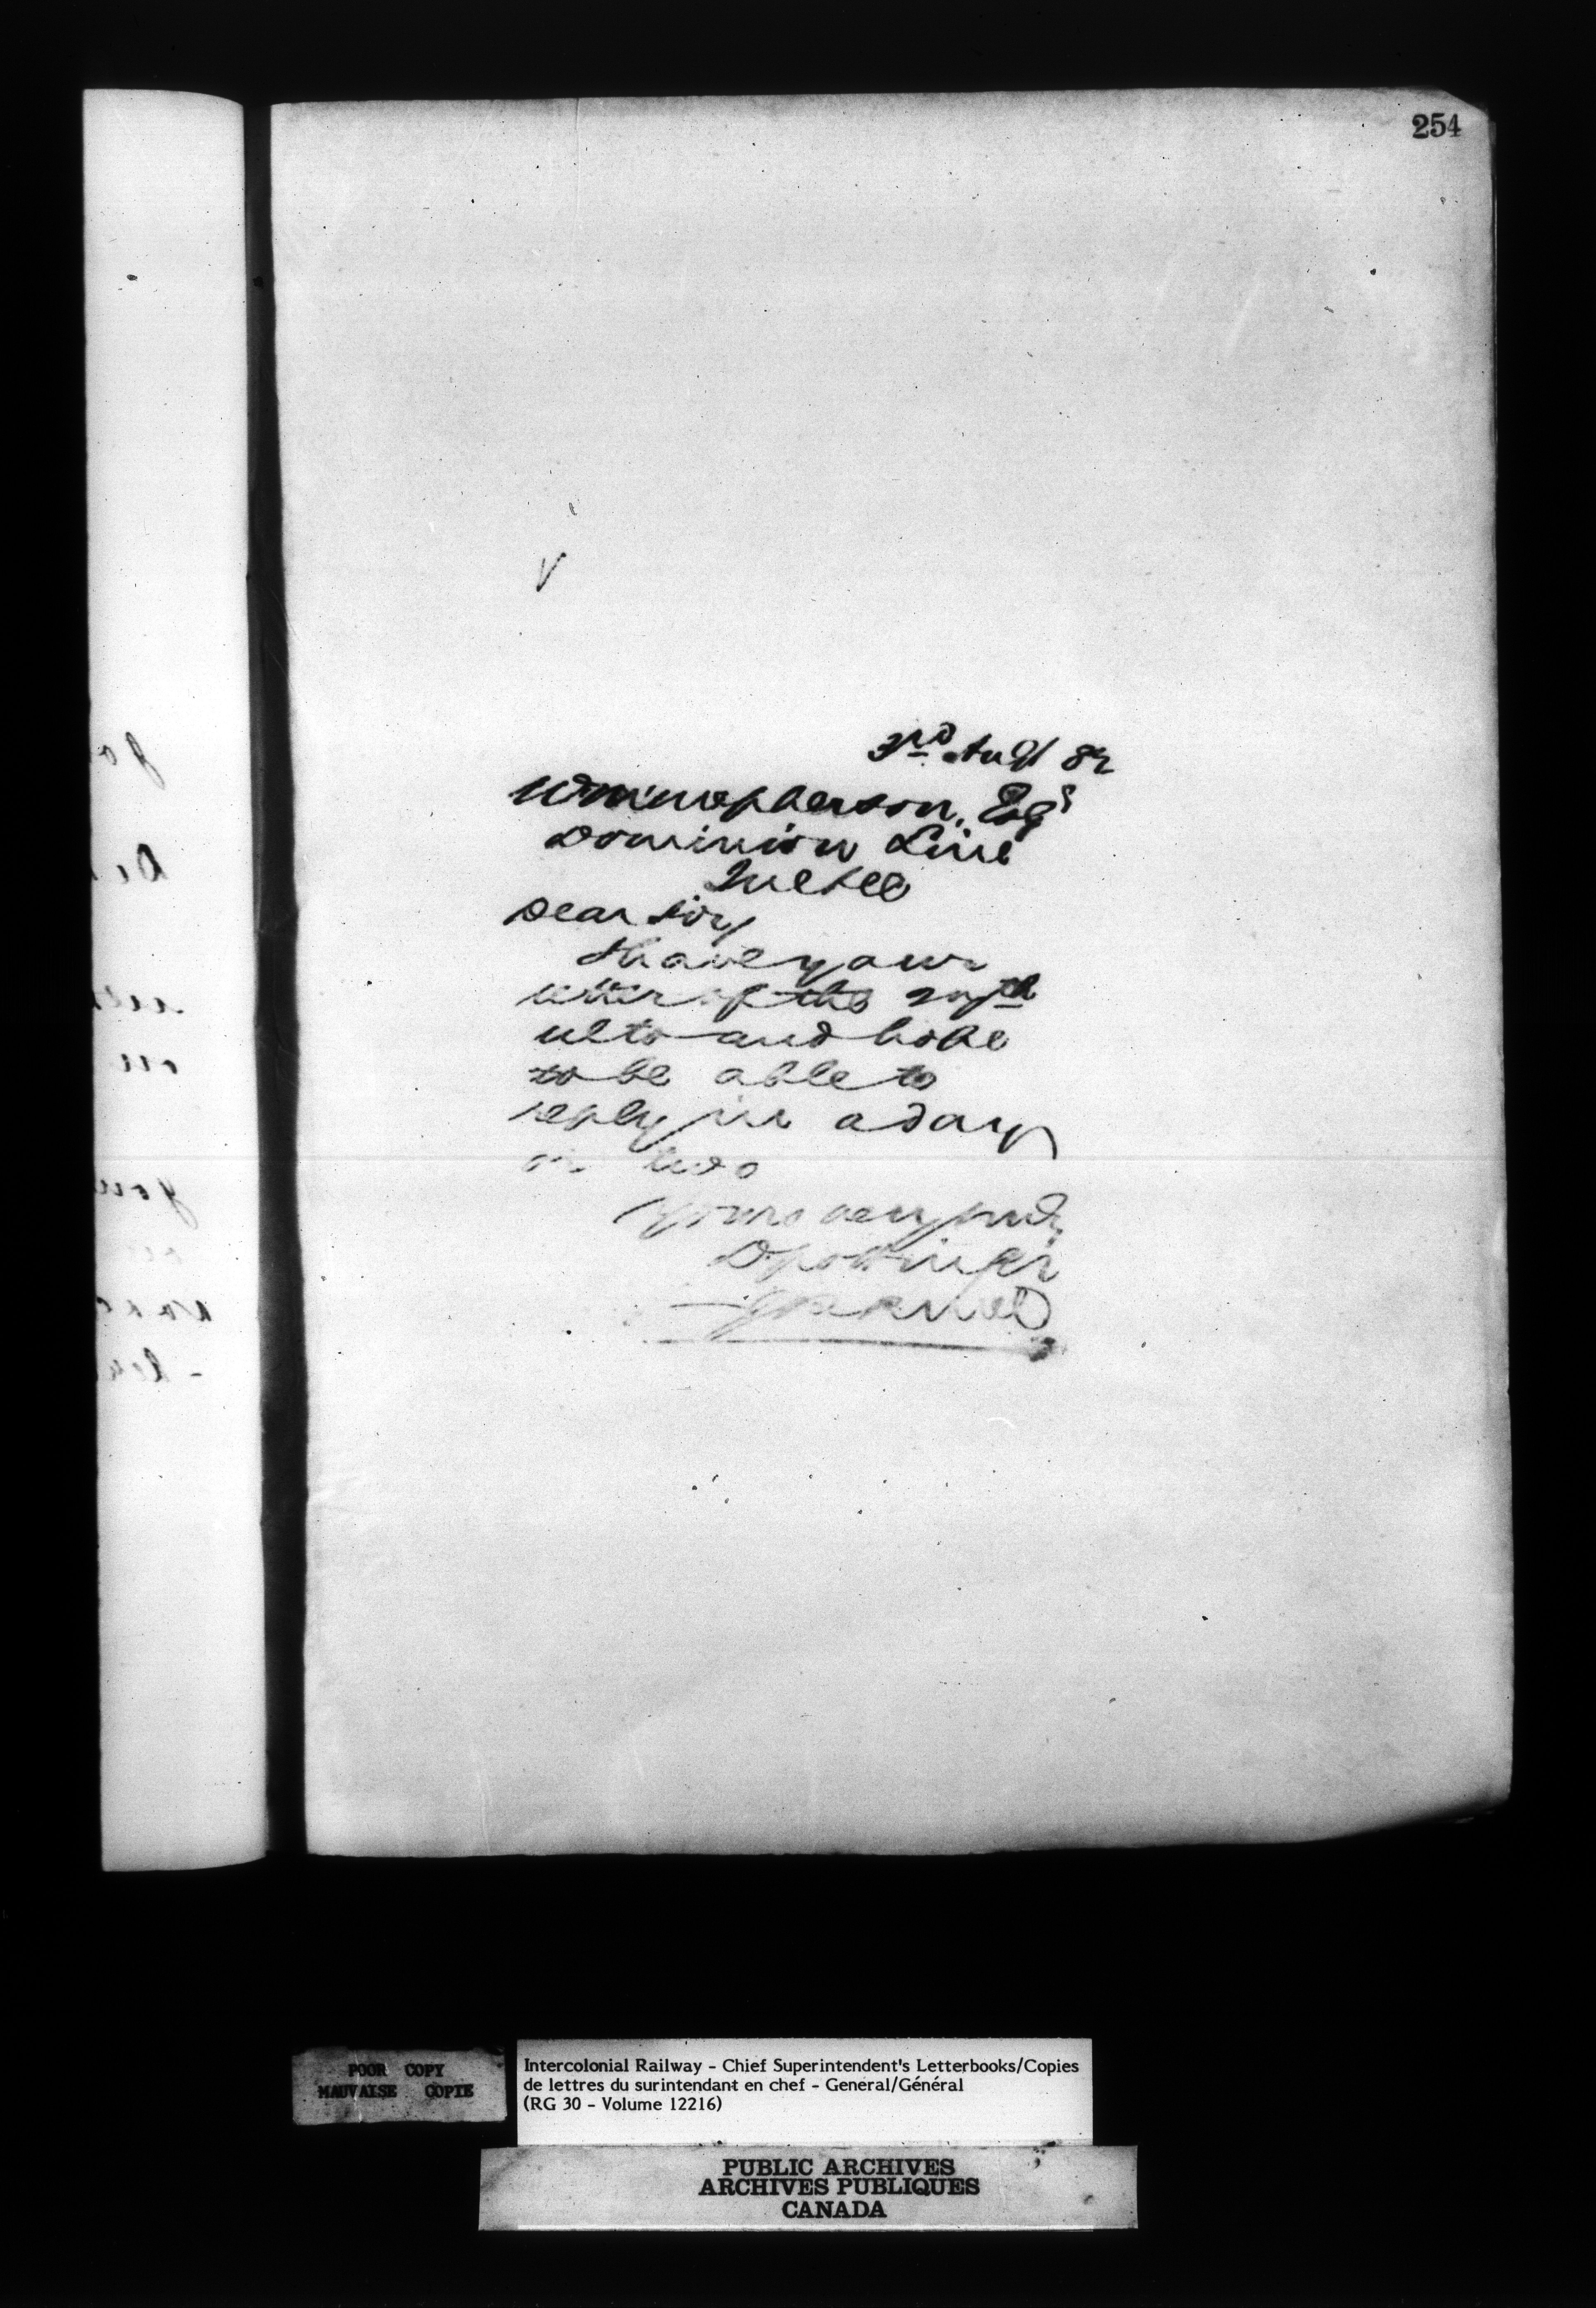 254
3rd Augt 82
Wm Mcpherson, Esqr
Dominion Line
Quebec
Dear Sir,
I have your
letter of the 29th
ulto and hope
to be able to
reply in a day
or two
Yours very truly
D Pottinger
POOR COPY
MAUVAISE COPIE
Intercolonial Railway - Chief Superintendent's Letterbooks/Copies
de lettres du surintendant en chef - General/Général
(RG 30 - Volume 12216)
PUBLIC ARCHIVES
ARCHIVES PUBLIQUES
CANADA